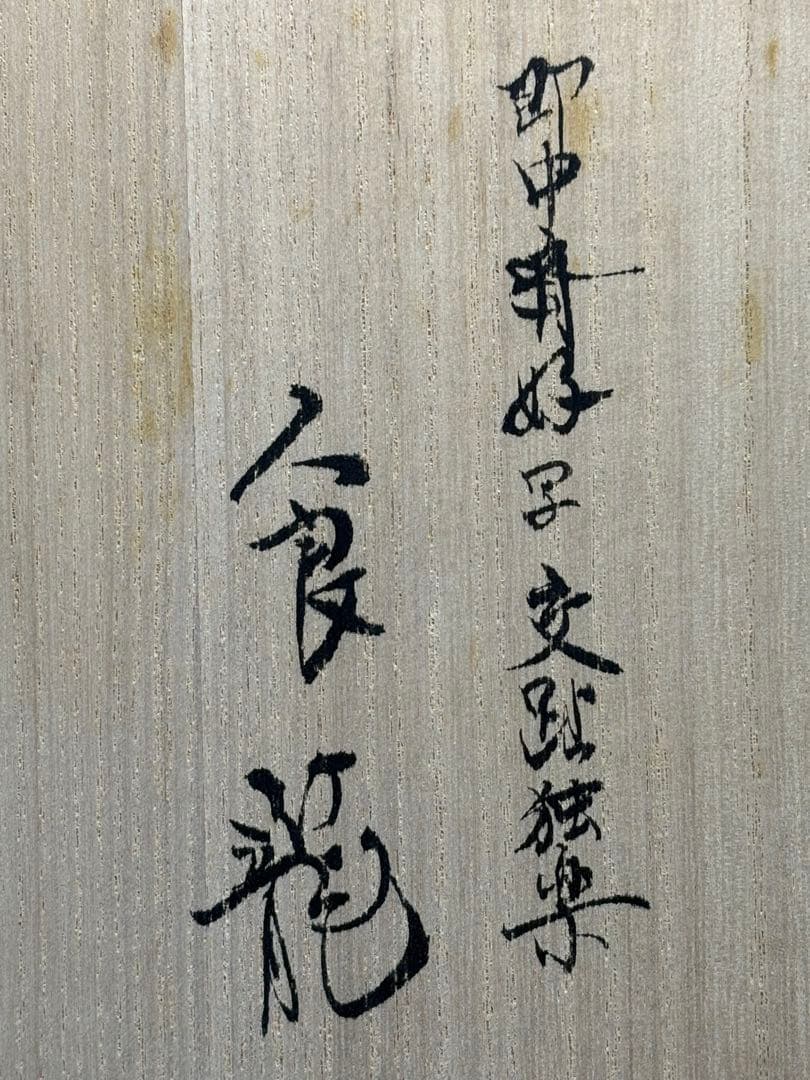 即中斎好写 交趾独楽
食籠